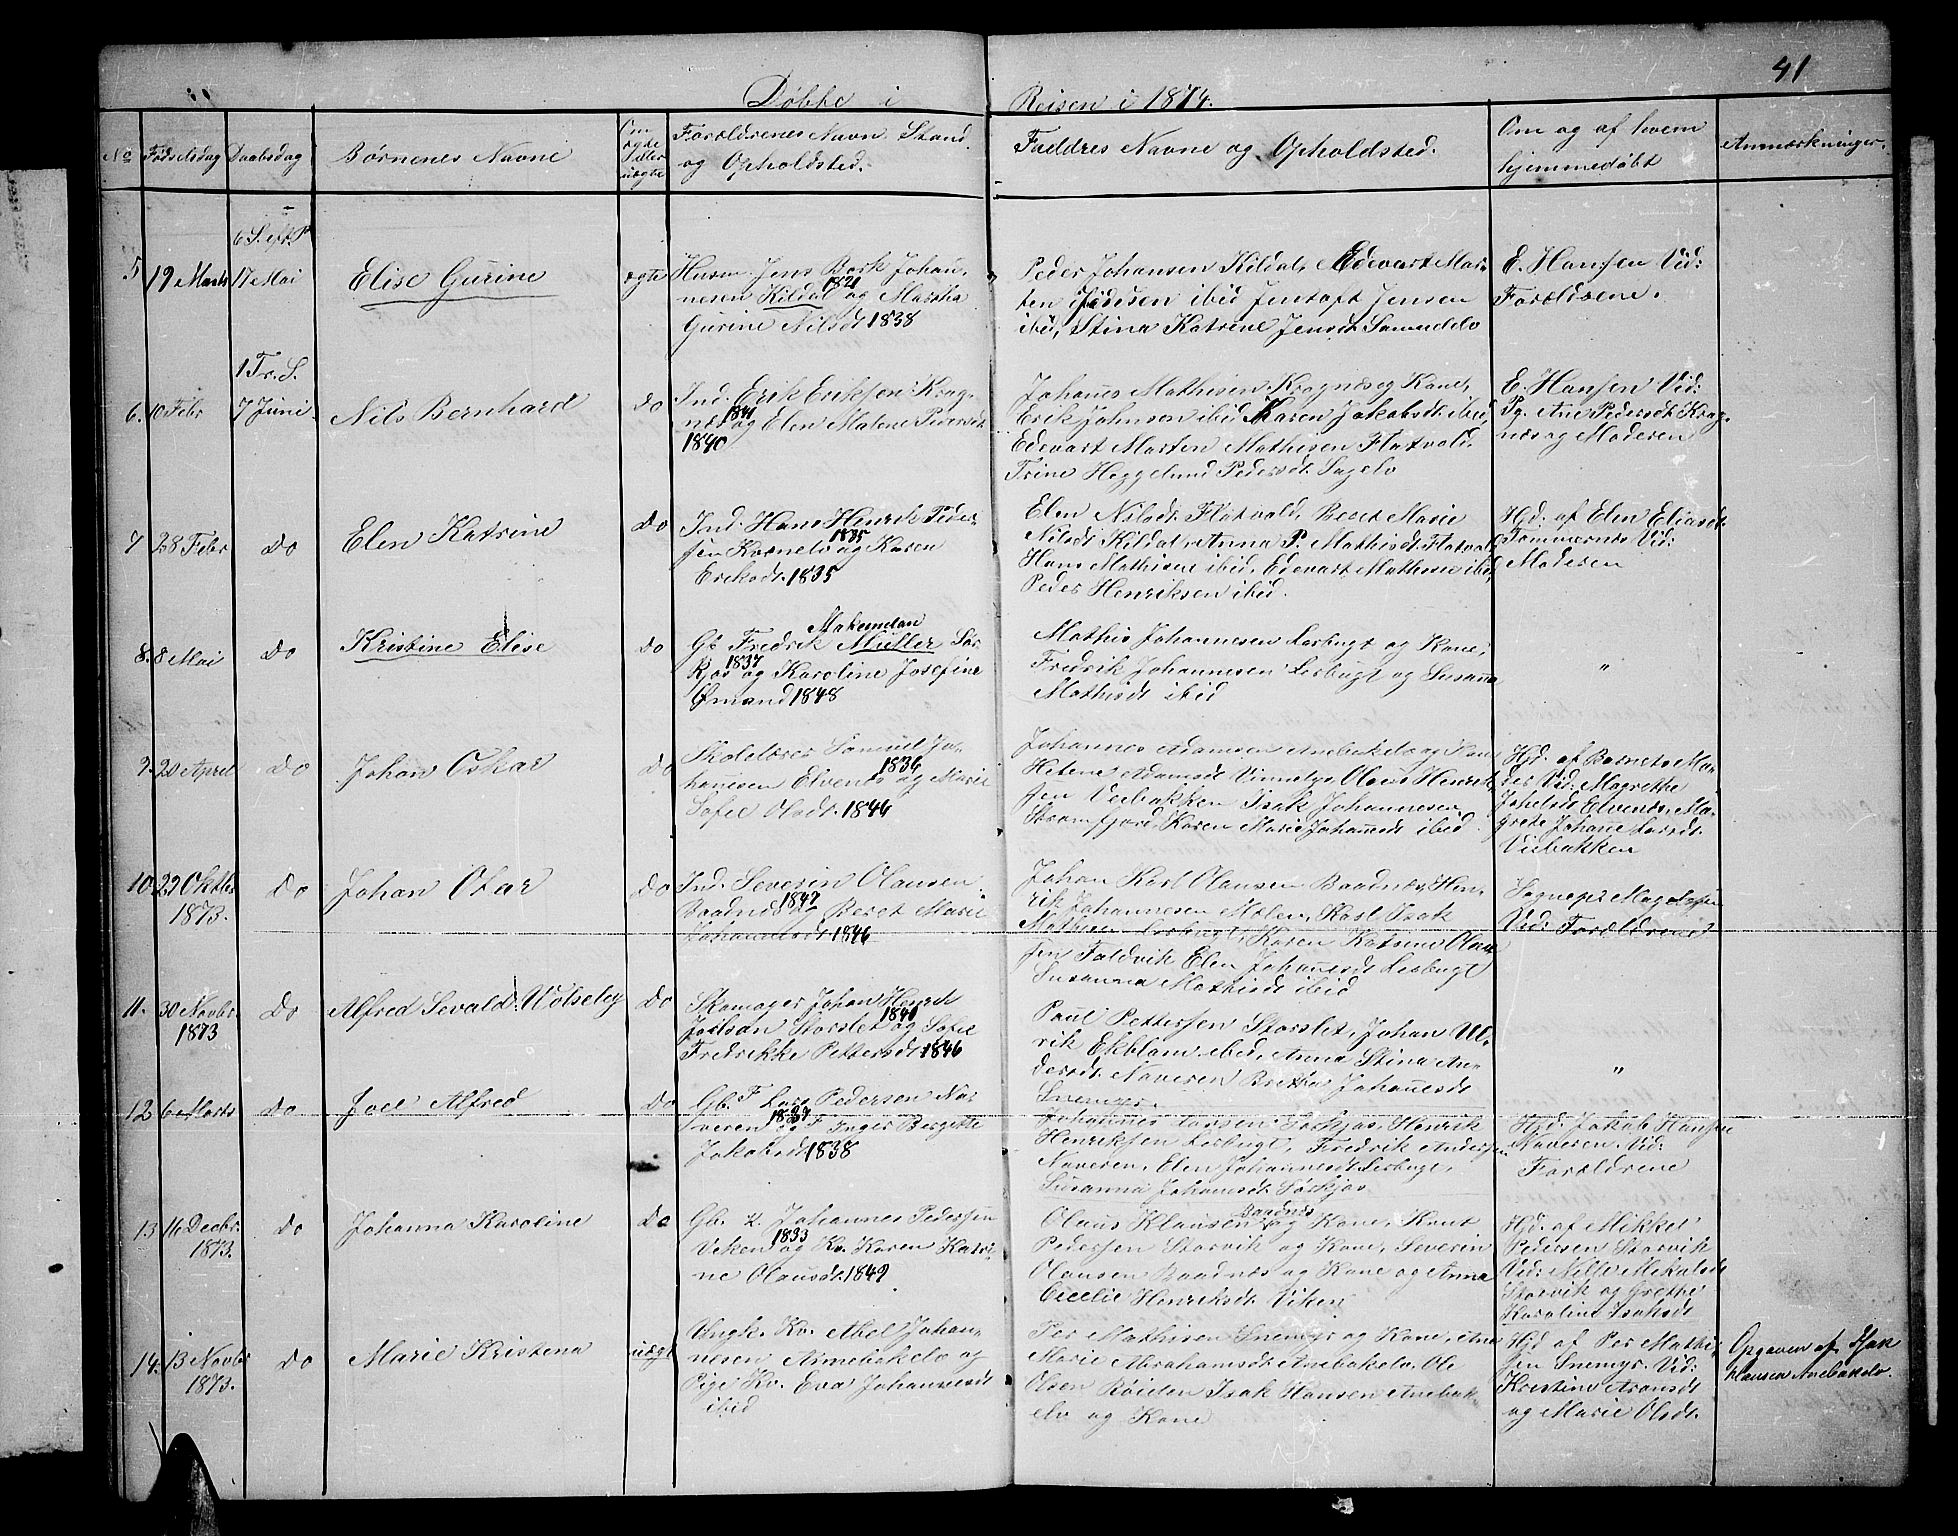 41
Döbte i Reisen i 1874.
No
Fødselsdag
Daabsdag
Børnenes Navne
Om
ægte
eller
uægte
Forældrenes Navn, Stand
og Opholdsted.
Faddres Navne og Opholdsted.
Om og af hvem
hjemmedøbt
Anmærkninger.
6 S. eft. P.
5 19 Marts 17 Mai
Elise Gurine
ægte
Husm. Jens Bark Johan-
nesen Kildal 1821 og Martha
Gurine Nilsdt 1838
Peder Johansen Kildal, Edevart Mor-
ten ibid Jentoft Jensen
ibid, Stina Katrine Jensdt Samuelelv
E. Hansen Vid:
Forældrene.
1 Tr. S.
6. 10 Febr 7 Juni
Nils Bernhard
do
Ind. Erik Eriksen Krag-
næs 1841 og Elen Malene Pedersdt
1840
Johanes Mathisen Kragnæs og Kone,
Erik Johnsen ibid Karen Jakobsdt ibid,
Edevart Morten Mathisen Flatvold
Trine Heggelund Pedersdt Sagelv
E. Hansen Vid:
Pg. Ane Pedersdt Krag-
næs og Moderen
7 28 Febr do
Elen Katrine
do
Ind. Hans Henrik Peder-
sen Kornelv 1835 og Karen
Eriksdt. 1835
Elen Nilsdt Flatvold, Beret Marie
Nilsdt Kildal, Anna P. Mathisdt Flatvold
Hans Mathisen ibid, Edevart Mathisen ibid,
Peder Henriksen ibid.
Hjd. af Elen Eliasdt
Tømmernæs Vid:
Moderen
8. 8 Mai do
Kristine Elise
do
Gb Fredrik Müller Sør-
kjos 1837 og Karoline Josefine
Ømand 1848
Mathis Johannesen Lerbugt og Kone,
Fredrik Johannesen Lerbugt og Susanna
Mathisdt ibid
"
9. 20 April do
Johan Oskar
do
Skolelærer Samuel Jo-
hannesen Elvenes 1836 og Marie
Sofie Olsdt. 1846
Johannes Adamsen Anebakelv og Kone
Helene Adamsdt Vinnelys Olaus Henrik-
sen Veibakken Isak Johannesen
Straumfjord, Karen Marie Johannesdt ibid
Hjd. af Barnets Mo-
der Vid. Magrethe
Johelsdt Elvenes, Ma-
grete Johanne Larsdt
Veibakken
10. 29 Oktbr do
1873.
Johan Otar
do
Ind. Severin Olausen
Baadnæs 1847 og Beret Marie
Johannesdt 1846
Johan Karl Olausen Baadnæs, Hen-
rik Johannesen Molen, Karl Isak
Mathisen Lerbugt, Karen Katrine Olau-
sen Foldvik Elen Johanesdt Lerbugt
Susanna Mathisdt ibid
Vid: Forældrene
11. 30 Novbr. do
1873
Alfred Sevald Wolseley
do
Skomager Johan Henrik
Storslet 1840 og Sofie
Fredrikke Pettersdt 1846
Paul Pettersen Storslet, Johan Ul-
rik Ekblom ibid, Anna Stina An-
dersdt Naveren Bretha Johanesdt
Snemyr.
"
12 6 Marts do
Joel Alfred
do
Gb. F. Lars Pedersen Na-
veren 1837 og F. Inger Bergitte
Jakobsdt 1838
Johannes Larsen Sørkjos, Henrik
Henriksen Lerbugt, Fredrik Andersen
Naveren, Elen Johannesdt Lerbugt,
Susanna Johanesdt Sørkjos
Hjd. Jakob Hansen
Naveren. Vid:
Forældrene
13 16 Decbr. do
1873.
Johanna Karoline
do
Gb. K. Johannes Pedersen
Viken 1833 og Kv. Karen Katri-
ne Olausdt. 1849
Olaus Klausen Baadnæs og Kone, Knut
Pedersen Storvik og Kone, Severin
Olausen Baadnæs og Kone og Anna
Cecelie Henriksdt. Viken
Hjd. af Mikkel
Pedersen Storvik
Vid: Nille Mikalsdt
Storvik og Grethe
Karoline Isaksdt
14. 13 Novbr do
1873.
Marie Kristena
uægt
Ungk. Kv. Abel Johan-
nesen Annebakelv og
Pige Kv. Eva Johannesdt
ibid
Per Mathisen Snemyr og Kone, Ane
Marie Abrahamsdt Anebakelv. Ole
Olsen Röiden Isak Hansen Anebak-
elv og Kone
Hjd af Per Mathi-
sen Snemyr. Vid:
Kristine Aronsdt
og Marie Olsdt.
Opgaven af Isak
Hansen Anebakelv.